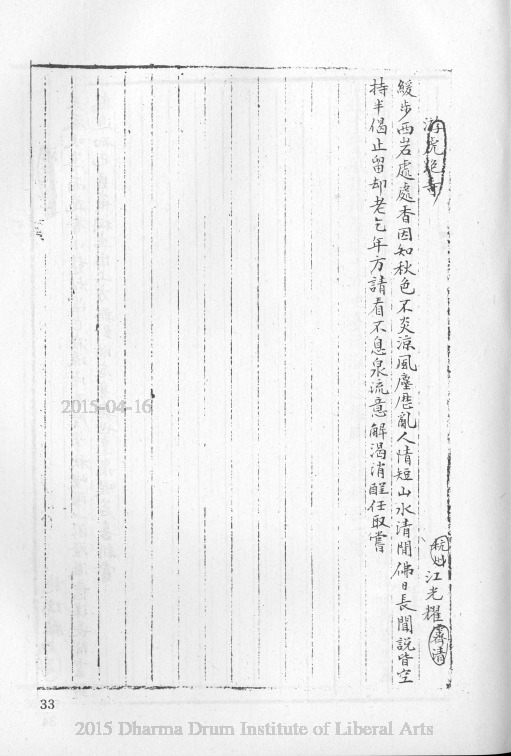 游虎跑寺
杭州 江光耀 霽清
緩步西岩處處香因知秋色不炎涼風塵歷亂人情短山水清閒佛日長聞說皆空
持半偈止留却老乞年方請看不息泉流意解渴消酲任取嘗
33
2015-04-16
2015 Dharma Drum Institute of Liberal Arts